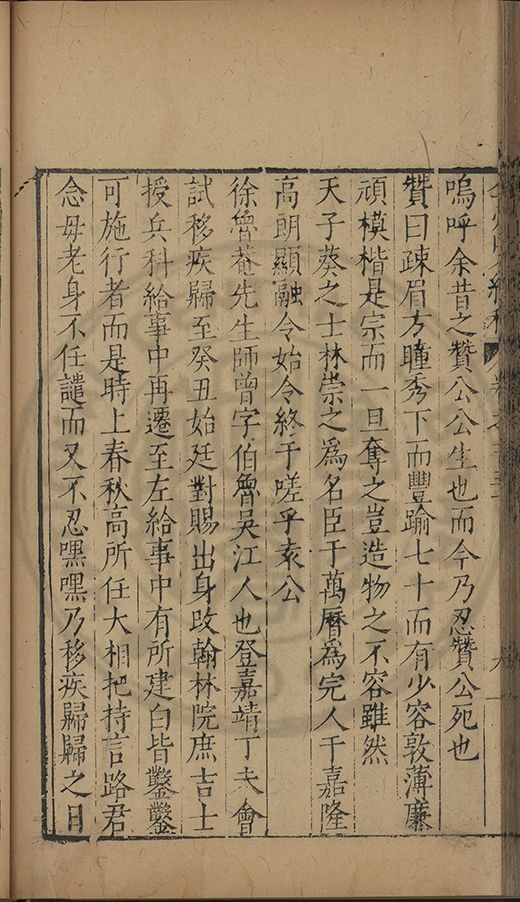 嗚呼余昔之贊公公生也而今乃忍贊公死也
贊曰疎眉方瞳秀下而豐踰七十而有少容敦薄廉
頑模楷是宗而一旦奪之豈造物之不容雖然
天子葵之士林崇之爲名臣于萬曆爲完人于嘉隆
高朗顯融令始令終于嗟乎袁公
徐魯菴先生師曾字伯魯吳江人也登嘉靖丁未會
試移疾歸至癸丑始廷對賜出身改翰林院庶吉士
授兵科給事中再遷至左給事中有所建白皆鑿鑿
可施行者而是時上春秋高所任大相把持言路君
念毋老身不任譴而又不忍嘿嘿乃移疾歸歸之日